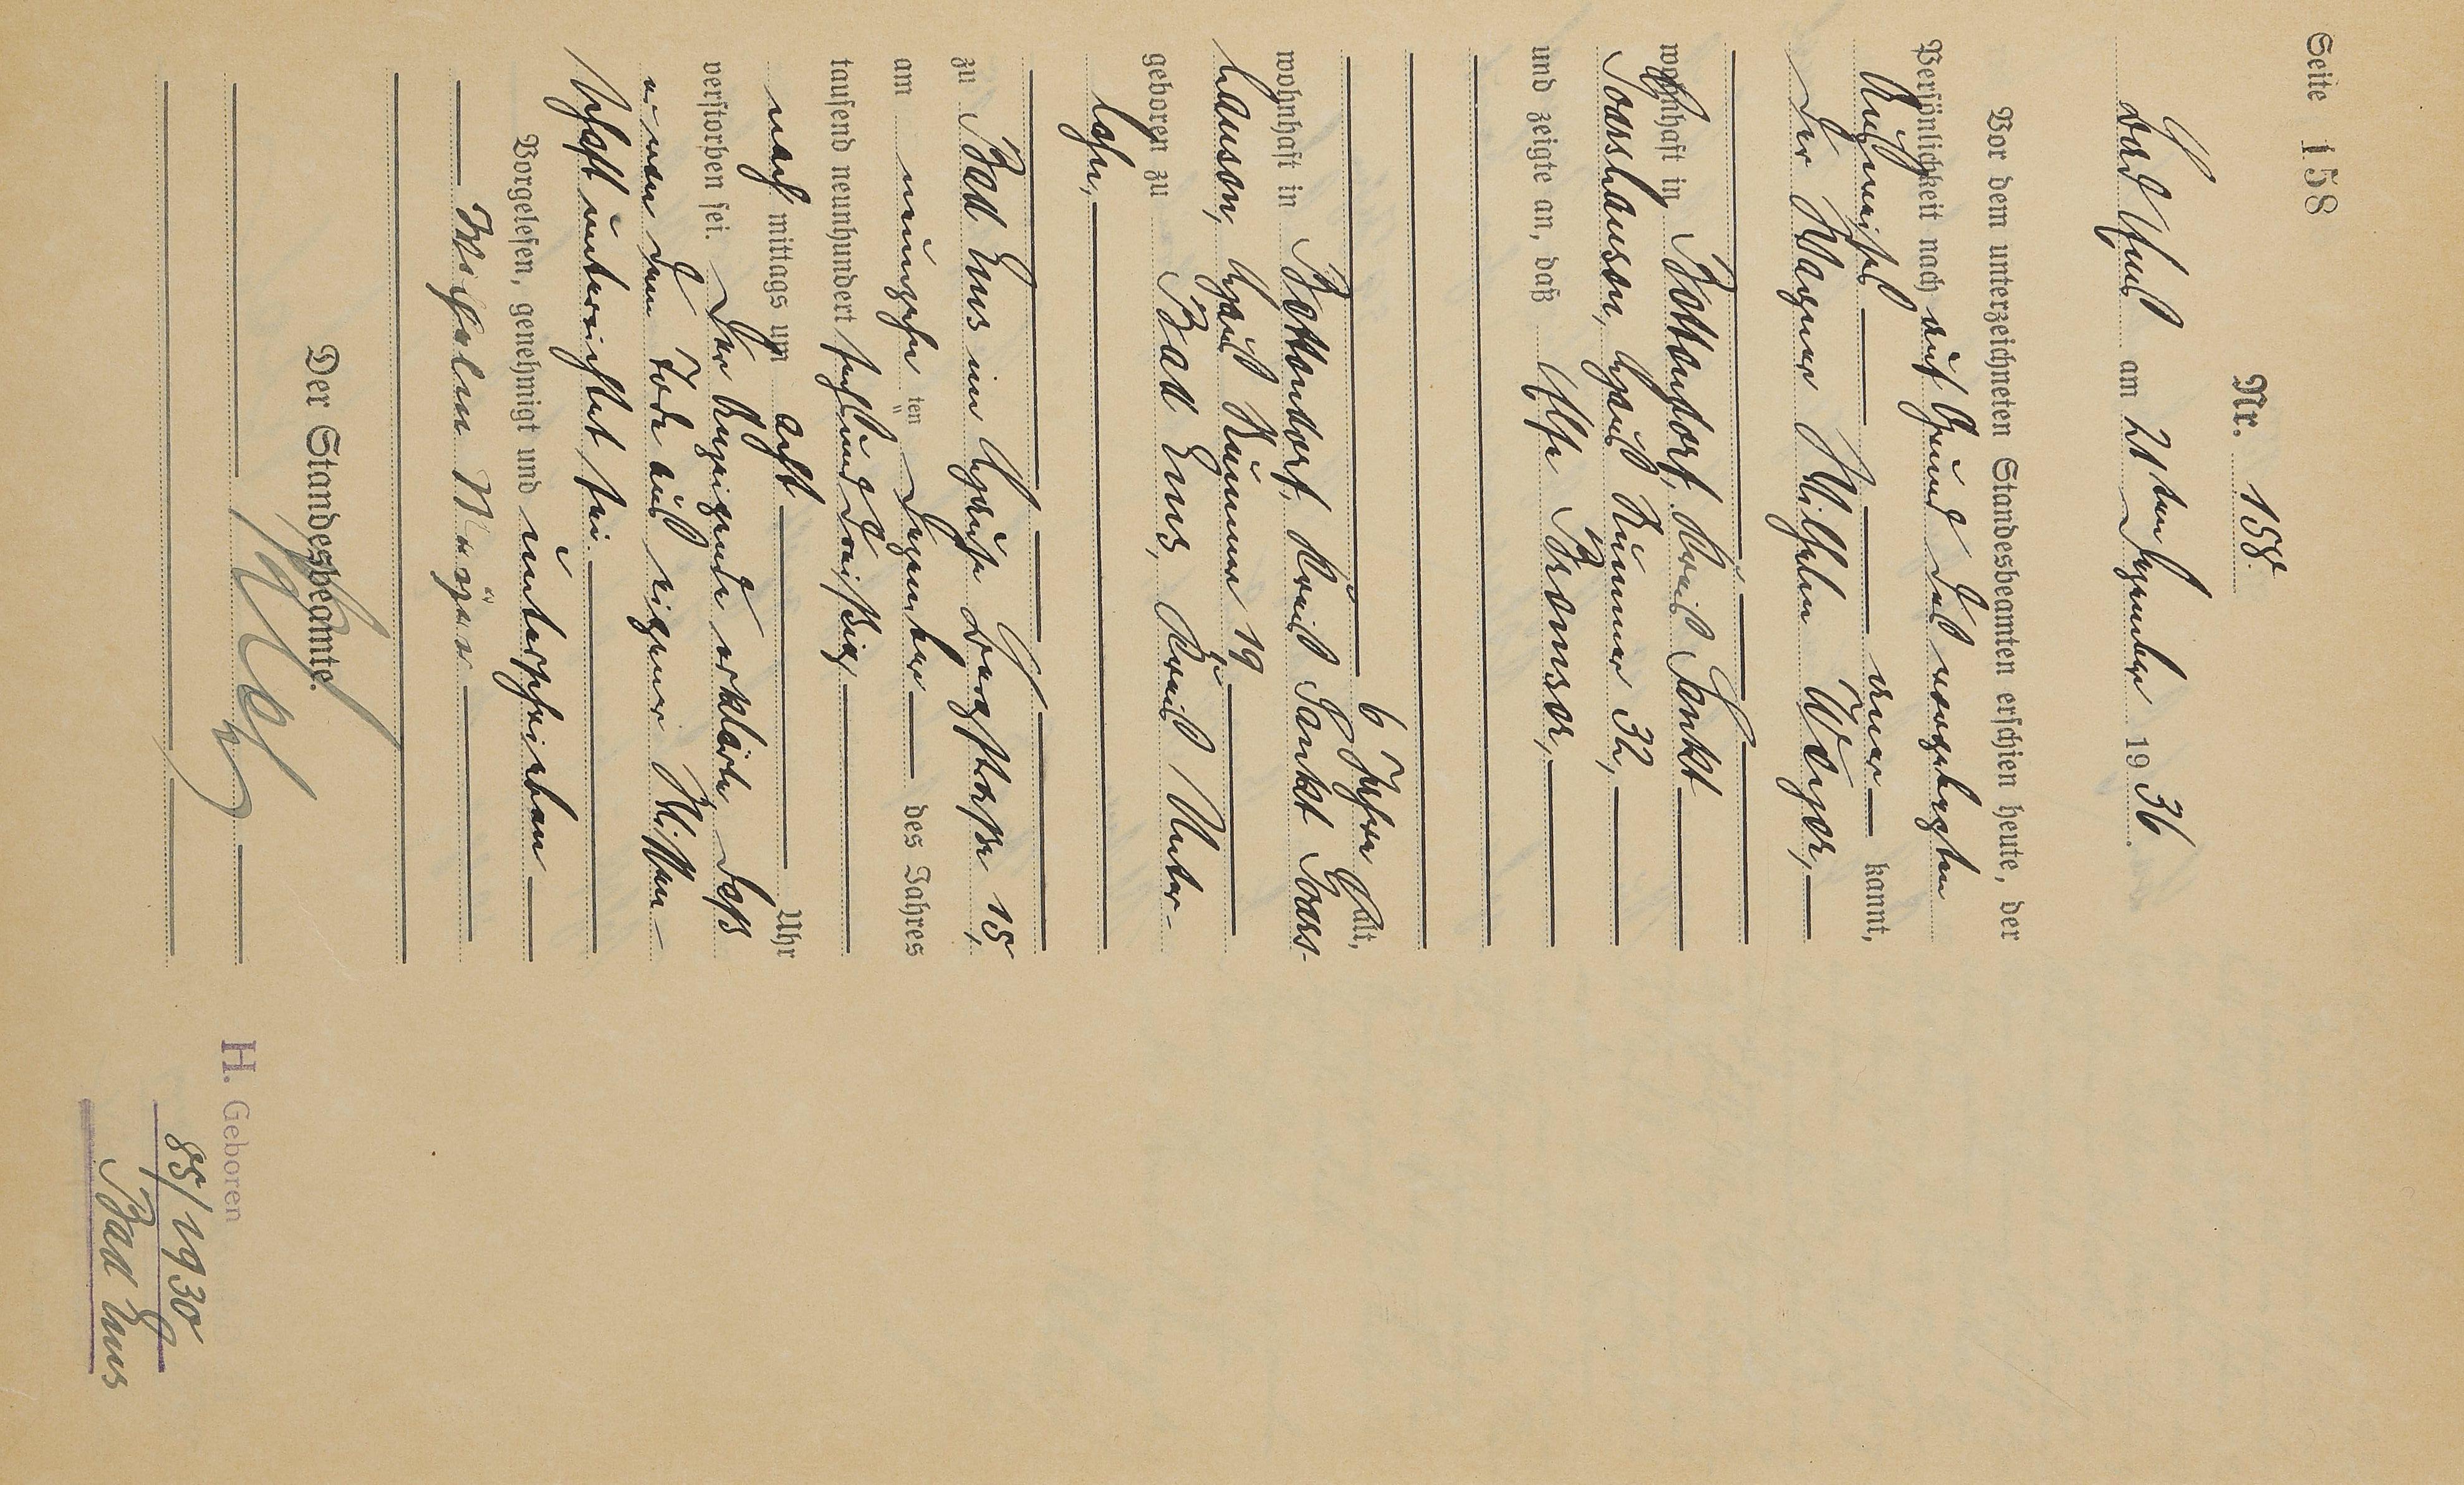 Seite 158
Nr. 158.
Bad Ems am 21ten Dezember 1936.
Vor dem unterzeichneten Standesbeamten erschien heute, der
Persönlichkeit nach auf Grund des vorgelegten
Ausweises aner kannt,
der Wagner Wilhelm
wohnhaft in Bettendorf, Kreis Sankt
Goarshausen, Haus Nummer 32,
und zeigte an, daß
6 Jahre alt,
wohnhaft in Bettendorf, Kreis Sankt Goars-
hausen, Haus Nummer 19
geboren zu Bad Ems, Kreis Unter-
lahn,
zu Bad Ems im Hause 15,
am neunzehn ten Dezember des Jahres
tausend neunhundert sechsunddreißig
nach mittags um acht Uhr
verstorben sei. Der Anzeigende erklärte, daß
er von dem Tode aus eigener Wissen-
schaft unterrichtet sei.
Vorgelesen, genehmigt und unterschrieben
Wilhelm
Der Standesbeamte.
H. Geboren
85/1930
Bad Ems